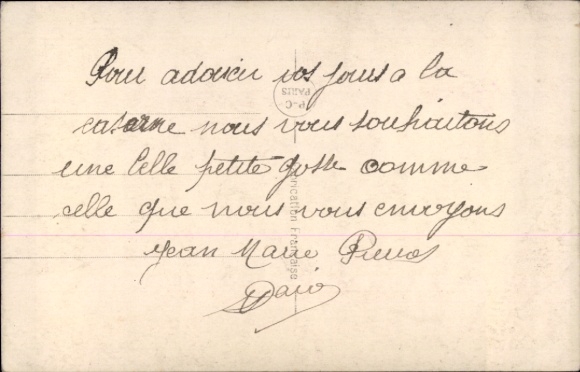 Pour adoucir vos jours a la
caserne nous vous souhaitons
une belle petite gosse comme
celle que nous vous envoyons
Jean Marie Pierre
P-C-
PARIS
Fabrication Française